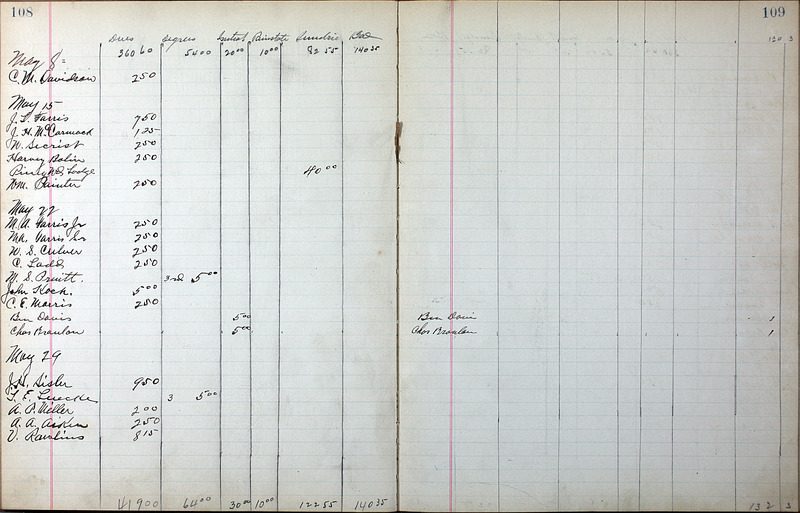 108
Dues Degrees Initiat Reinstate Sundrie Bro
May 8 = 360 60 54 00 20 00 10 00 82 55 140 35
C. M. Davidson 2 50
May 15
J. L. Farris 7 50
J. H. McCormack 1 25
W. Secrist 2 50
Harvey 2 50
Lodge 40 00
Wm. Painter 2 50
May 22
M. A. Harris Jr 2 50
Ma. Harris Sr 2 50
W. S. Culver 2 50
C. Ladd 2 50
M. S. Pruitt. 3rd 5 00
John Kock. 5 00
C. E. Morris 2 50
Ben Davis 5 00
Chas Branlon 5 00
May 29
J. H. Sisler 9 50
L. E. Luecke 3 5 00
A. P. Miller 2 00
A. A. Aiken 2 50
V. Rawlins 8 15
419 00 64 00 30 00 10 00 122 55 140 35
109
130 3
Ben Davis 1
Chas Branlon 1
132 3